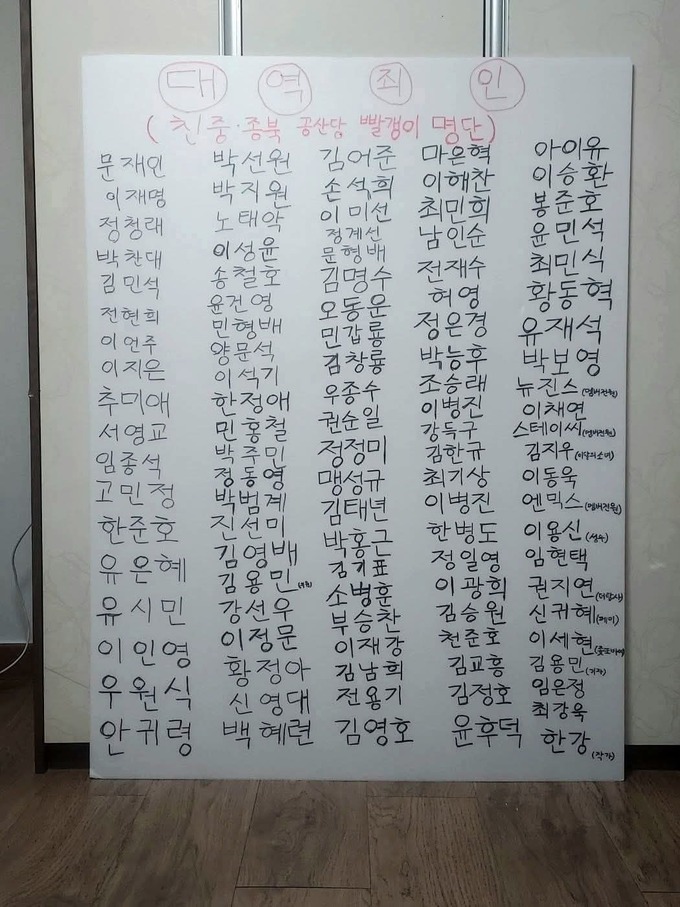 대 역 죄 인
(친중·종북 공산당 빨갱이 명단)
문재인
이재명
정청래
박찬대
김민석
전현희
이언주
이지은
추미애
서영교
임종석
고민정
한준호
유은혜
유시민
이인영
우원식
안귀령
박선원
박지원
노태악
이성윤
송철호
윤건영
민형배
양문석
이석기
한정애
민홍철
박주민
정동영
박범계
진선미
김영배
김용민
강선우
이정문
황정아
신영대
백혜련
김어준
손석희
이미선
정계선
문형배
김명수
오동운
민갑룡
김창룡
우종수
권순일
정정미
맹성규
김태년
박홍근
김기표
소병훈
부승찬
이재강
김남희
전용기
김영호
마은혁
이해찬
최민희
남인순
전재수
허영
정은경
박능후
조승래
이병진
강득구
김한규
최기상
이병진
한병도
정일영
이광희
김승원
천준호
김교흥
김정호
윤후덕
아이유
이승환
봉준호
윤민석
최민식
황동혁
유재석
박보영
뉴진스(멤버전원)
이채연
스테이씨(멤버전원)
김지우(이달의소녀)
이동욱
엔믹스(멤버전원)
이용신(성우)
임현택
권지연
신귀혜
이세현
김용민(기자)
임은정
최강욱
한강(작가)